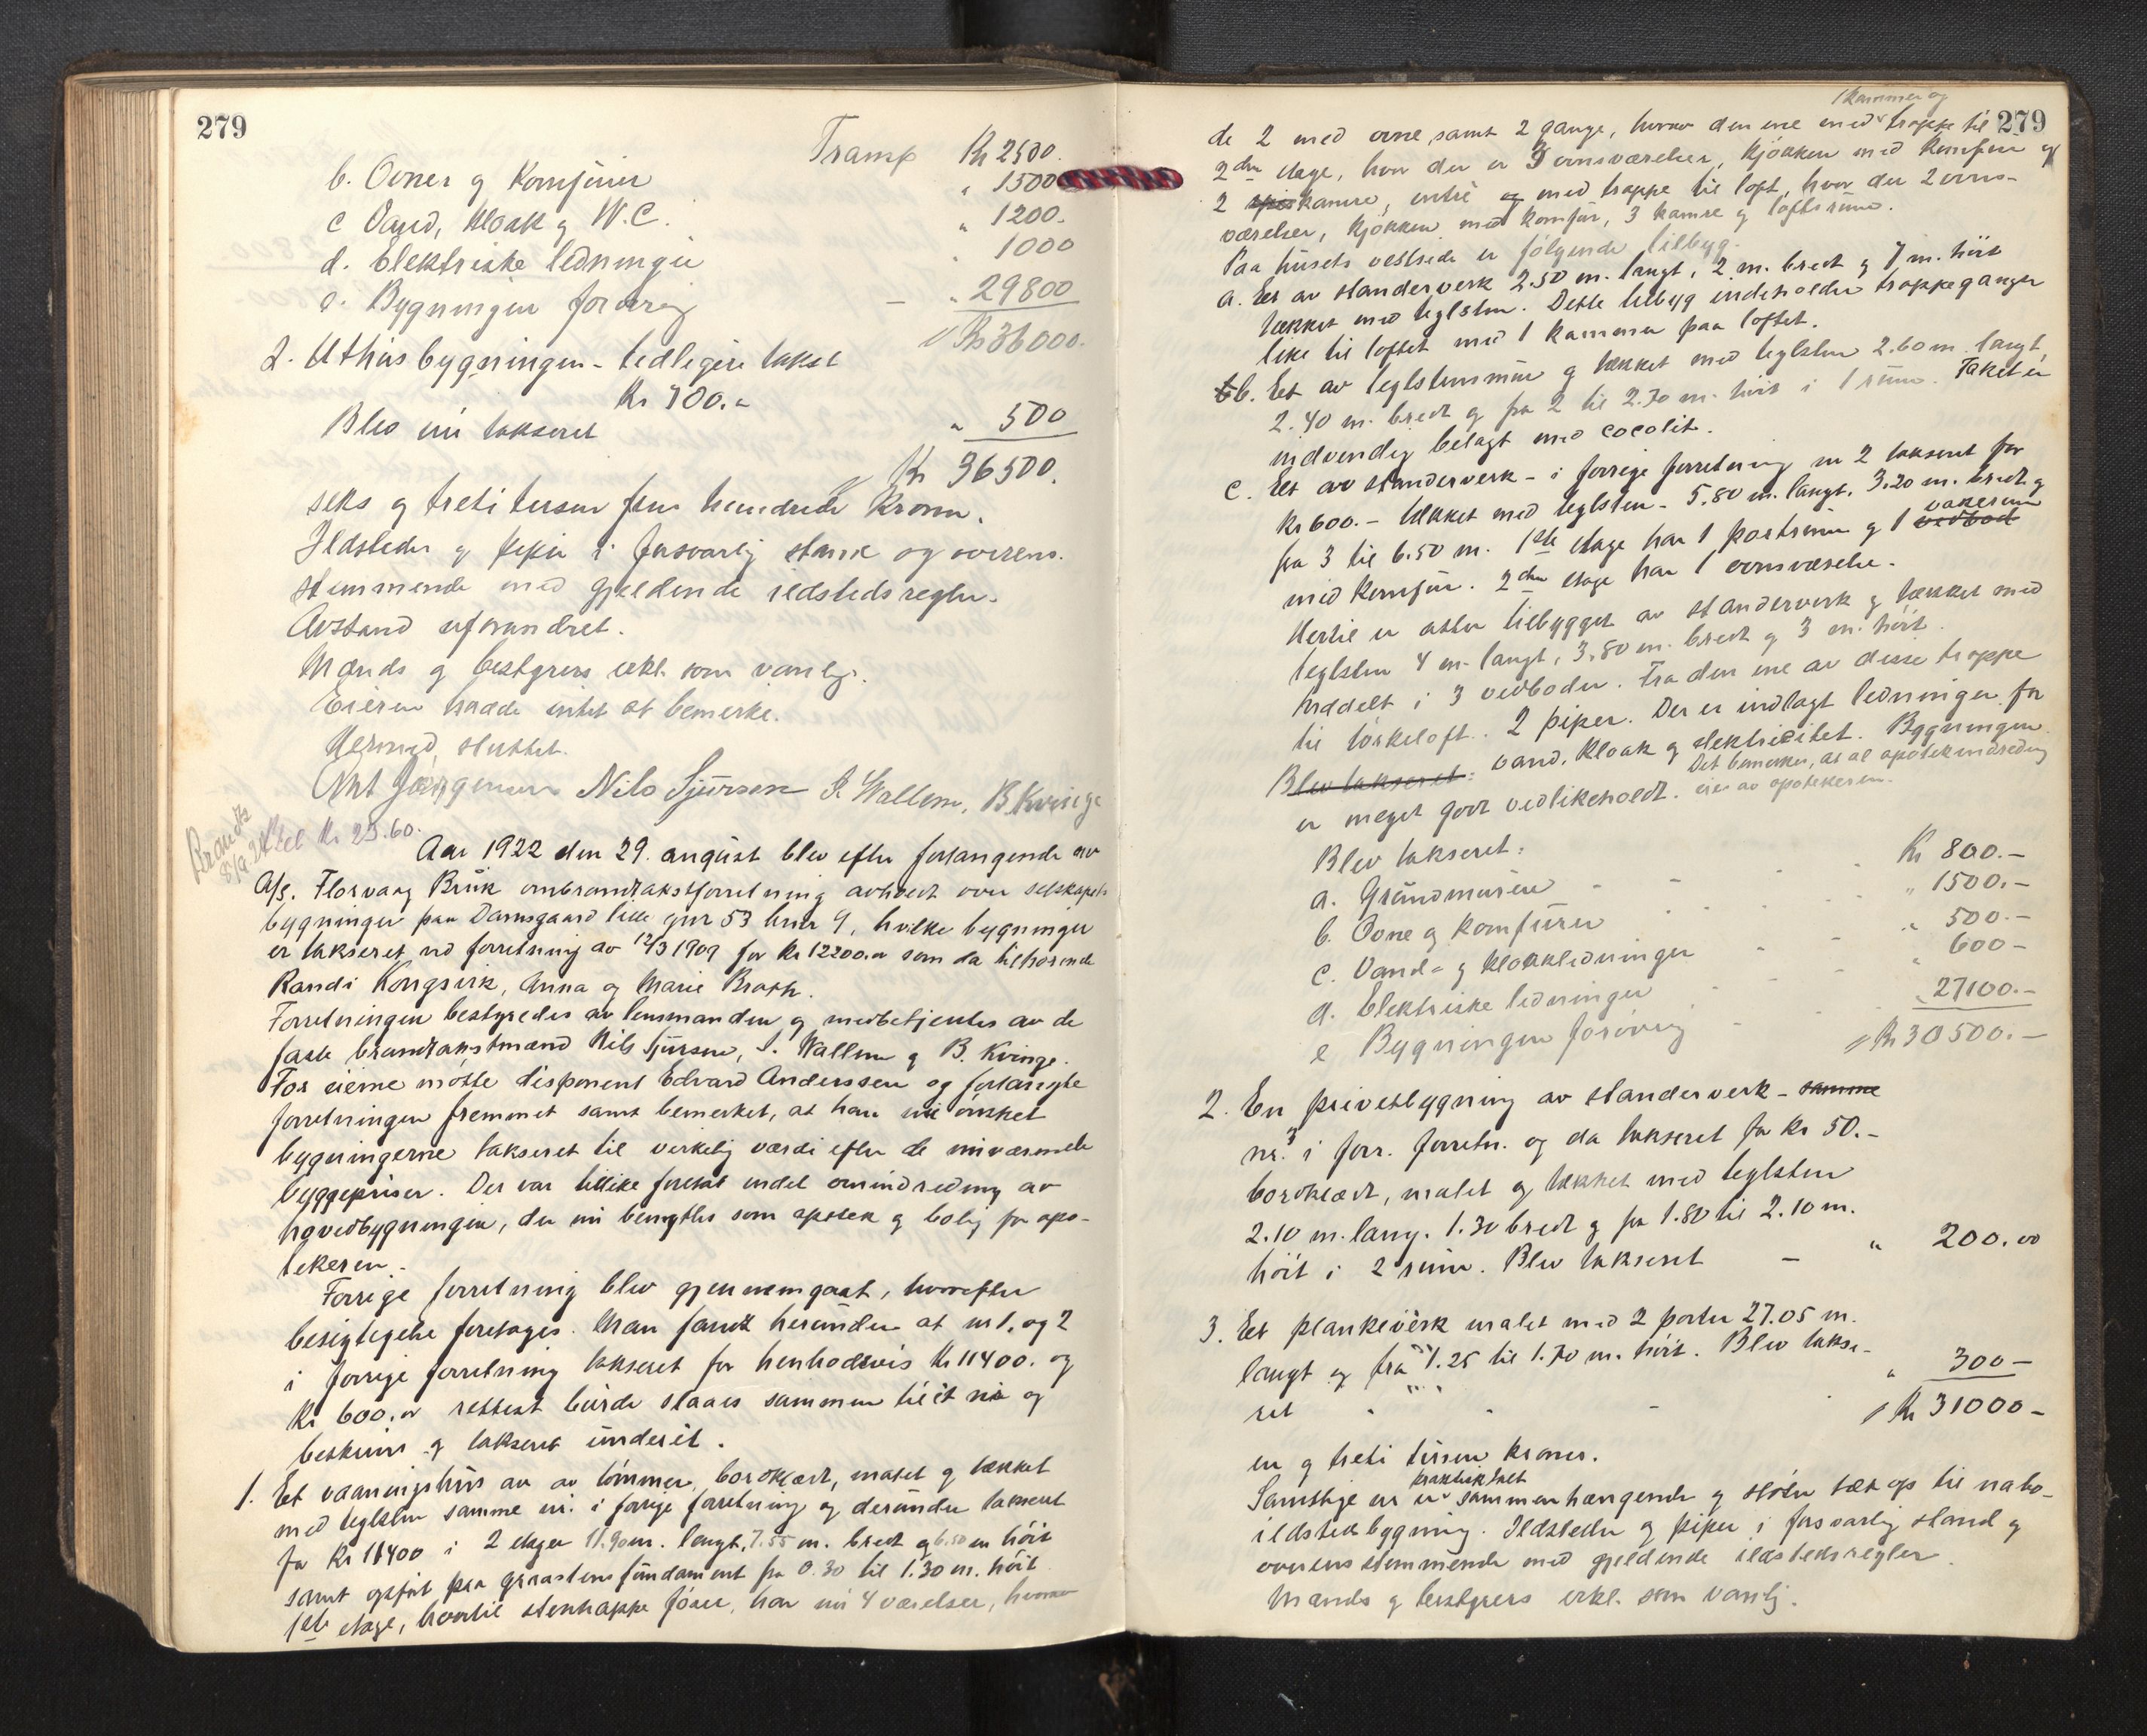 279
Transp Kr 2500.
b. Ovner og Komfürer " 1500
c Vand, kloak og W.C. " 1200.
d. Elektriske ledninger " 1000
e. Bygningen forøvrig — " 29800
Kr 36000.
2. Uthusbygningen - tidligere takst
Kr 700.-
Blev nu takseret " 500
Kr 36500.
seks og tretitusen fem hundrede kroner.
Ildsteder og piper i forsvarlig stand og overens-
stemmende med gjeldende ildstedsregler.
Avstand uforandret.
Mænds og bestyrers erkl. som vanlig.
Eieren hadde intet at bemerke.
Hermed sluttet.
Nils Sjursen S. Wallem, B Kvinge
Kr 23.60.
Aar 1922 den 29. august blev efter forlangende av
A/S. Florvaag Bruk ombrandtakstforretning avholdt over selskapets
bygninger paa Damsgaard lille gnr 53 bnr 9, hvilke bygninger
er takseret ved forretning av 12/3 1909 for kr 12200.00 som da tilhørende
Randi Kongsvik, Anna og Marie Brath.
Forretningen bestyredes av lensmanden og medbetjentes av de
faste brandtakstmænd Nils Sjursen, S. Wallem og B. Kvinge.
For eierne møtte disponent Edvard Anderssen og forlangte
forretningen fremmet samt bemerket, at han nu ønsket
bygningerne takseret til virkelig værdi efter de nuværende
byggepriser. Der var tillike foretat endel omindredning av
hovedbygningen, der nu benyttes som apotek og bolig for apo-
tekeren.
Forrige forretning blev gjennemgaat, hvorefter
besigtigelse foretoges. Man fandt herunder at nr 1. og 2
i forrige forretning takseret for henholdsvis Kr 11400. og
Kr 600.00 rettest burde slaaes sammen til et nr og
beskrives og takseres under et.
1. Et vaaningshus av av tømmer, bordklædt, malet og tækket
med teglsten samme nr. i forrige forretning og derunder takseret
for Kr 11400 i 2 etager 11.90 m. langt, 7.55 m. bredt og 6.50 m høit
samt opført paa graastens fundament fra 0.30 til 1.30 m. høit.
1ste etage, hvortil stentrappe fører, har nu 4 værelser, hvorav
279
1 kammer og
de 2 med ovne, samt 2 gange, hvorav den ene med trappe til
2den etage, hvor der er 3 ovnsværelser, kjøkken med komfur og
2 kamre, entré og med trappe til loft, hvor der 2 ovns-
værelser, kjøkken med komfur, 3 kamre og loftsrum.
Paa husets vestside er følgende tilbyg:
a. Et av standerverk 2.50 m. langt, 2 m. bredt og 7 m. høit
tækket med teglsten. Dette tilbyg indeholder trappeganger
like til loftet med 1 kammer paa loftet.
b. Et av teglstensmur og tækket med teglsten 2.60 m. langt,
2.40 m. bredt og fra 2 til 2.70 m. høit i 1 rum. Taket er
indvendig belagt med cocolit.
c. Et av standerverk - i forrige forretning nr 2 takseret for
Kr 600.- tækket med teglsten - 5.80 m. langt. 3.20 m. bredt og
fra 3 til 6.50 m. 1ste etage har 1 portrum og 1 vedbod vaskerum
med komfur. 2den etage har 1 ovnsværelse.
Hertil er atter tilbygget av standerverk og tækket med
teglsten 4 m. langt, 3.80 m. bredt og 3 m. høit.
Inddelt i 3 vedboder. Fra den ene av disse trappe
til tørkeloft. 2 piper. Der er indlagt ledninger for
Blev takseret: vand, kloak og elektricitet. Bygningen
er meget godt vedlikeholdt. Det bemerkes, at al apotekindredning
eies av apotekeren.
Blev takseret:
a. Grundmuren - - Kr 800.-
b. Ovne og komfürer " 1500.-
c. Vand- og kloakledninger " 500.-
d. Elektriske ledninger " 600-
e Bygningen forøvrig " 27100.-
Kr 30500.-
2. En privetbygning av standerverk - samme
nr. 3 i forr. forretn. og da takseret for Kr 50.-
bordklædt, malet og tækket med teglsten
2.10 m. lang. 1.30 bredt og fra 1.80 til 2.10 m.
høit i 2 rum. Blev takseret — " 200.00
3. Et plankeverk malet med 2 porter 27.05 m.
langt og fra 1.25 til 1.70 m. høit. Blev takse-
ret " 300 -
Kr 31000-
en og treti tusen kroner.
Samtlige nr er praktisk talt sammenhængende og støter tæt op til nabo-
ildstedbygning. Ildsteder og piper i forsvarlig stand og
overensstemmende med gjeldende ildstedsregler.
Mænds og bestyrers erkl. som vanlig.